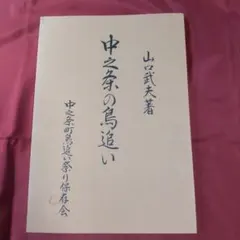 山口武夫著
中之条の鳥追い
中之条町鳥追い祭り保存会